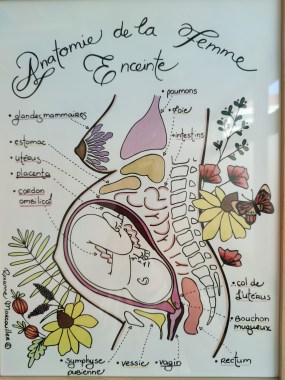 Anatomie de la Femme
Enceinte
• poumons
• foie
• intestins
• glandes mammaires
• estomac
• utérus
• placenta
• cordon
ombilical
• col de
l'utérus
• Bouchon
muqueux
• symphyse
pubienne
• vessie
• vagin
• rectum